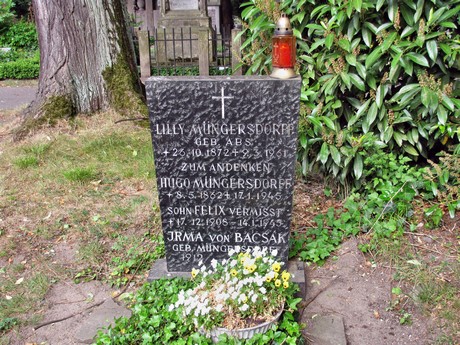 LILLY MÜNGERSDORFF
GEB. ABS.
+23.10.1872 +9.3.1961
ZUM ANDENKEN
HUGO MÜNGERSDORFF
+8.5.1862 +17.1.1945
SOHN FELIX VERMISST
+17.12.1908 - 14.1.1945
IRMA VON BACSÁK
GEB. MÜNGERSDORFF
1912